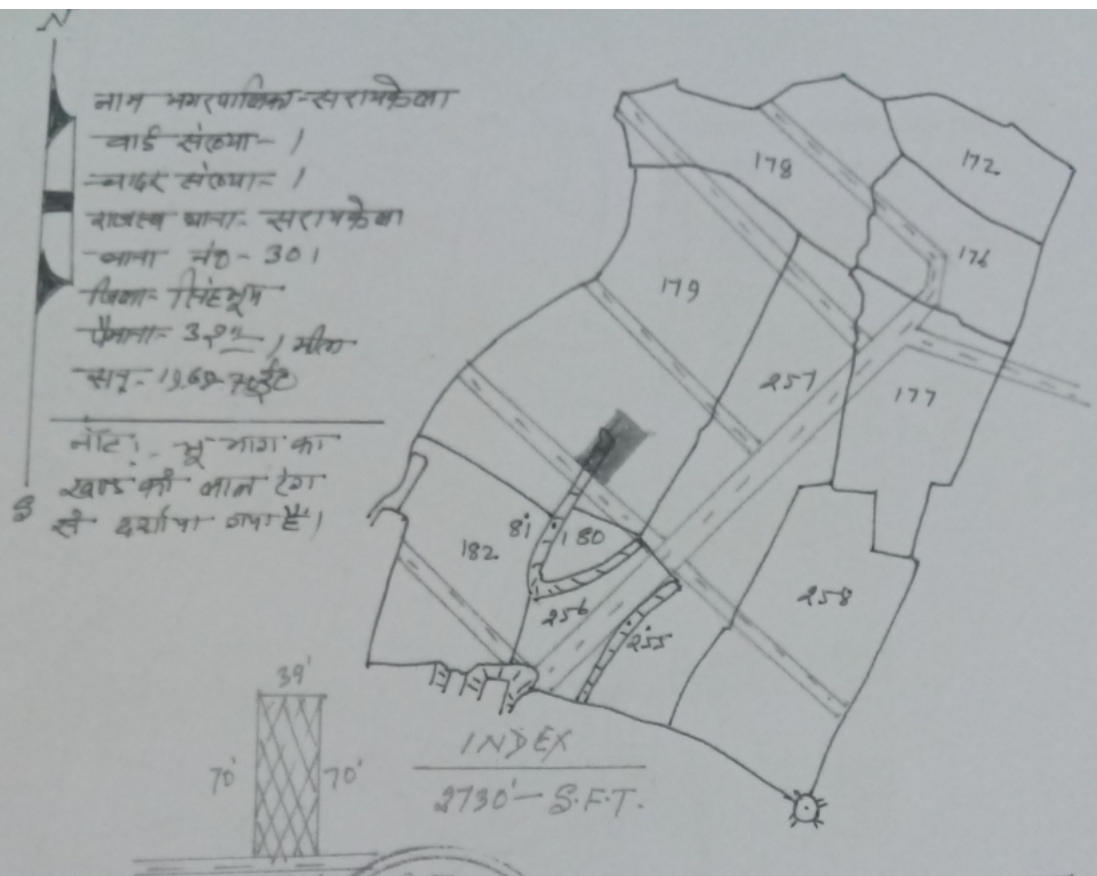 N
नाम नगरपालिका-सरायकेला
वार्ड संख्या- 1
चादर संख्या- 1
राजस्व थाना- सरायकेला
थाना नं०- 301
जिला- सिंहभूम
पैमाना- 32" = 1 मील
सन्- 1969-70 ई०
नोट:- भू भाग का
खण्ड को लाल रंग
से दर्शाया गया है।
S
178
172
176
179
257
177
81
180
182
256
255
258
39'
70'
70'
INDEX
2730'- S.F.T.